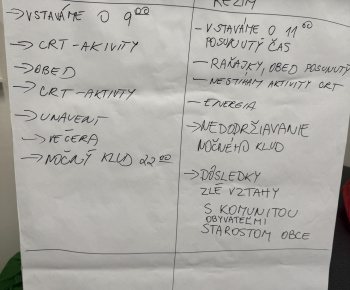 →VSTÁVAME O 9⁰⁰
→CRT-AKIVITY
→OBED
→CRT-AKTIVTY
→UNAVENÍ
→VEČERA
→NOČNÝ KĽUD 22⁰⁰
REŽIM
-VSTÁVAME O 11⁰⁰
POSUNUTÝ ČAS
-RAŇAJKY, OBED POSUNUTÝ
-NESTÍHAM AKTIVITY CRT
-ENERGIA
→NEDODRŽIAVANIE
NOČNÉHO KĽUD
→DÔSLEDKY
ZLÉ VZTAHY
S KOMUNITOU
OBYVATEĽMI
STAROSTOM OBCE